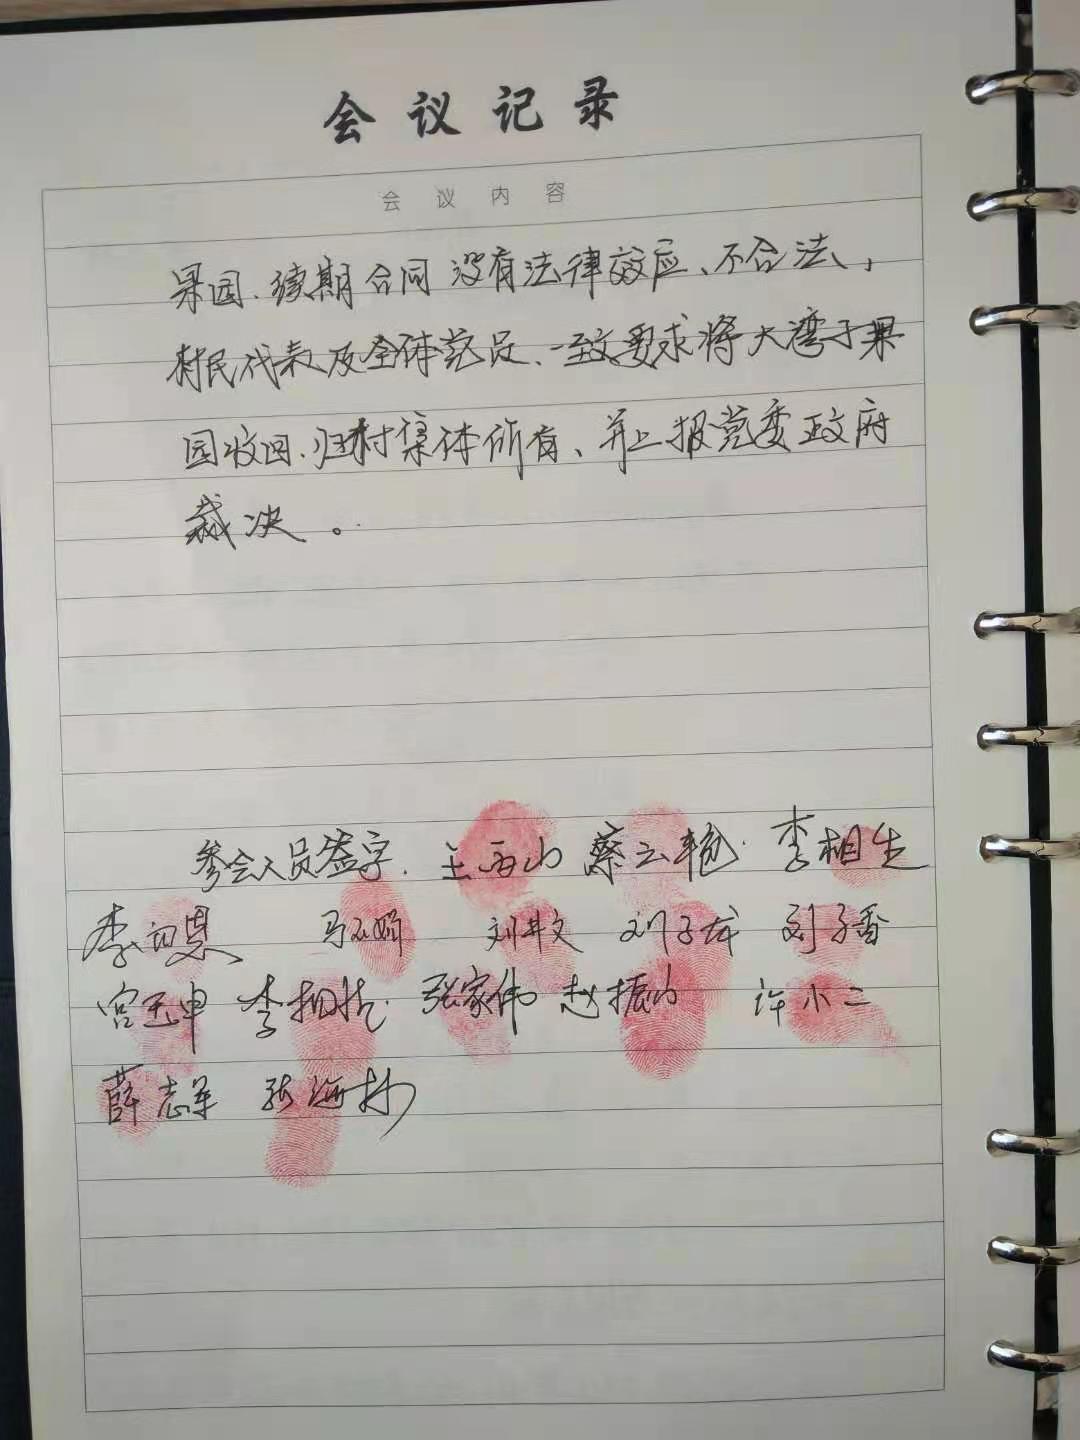 会议记录
会议内容
果园、续期合同没有法律效应、不合法，
村民代表及全体党员、一致要求将大湾子果
园收回、归村集体所有、并上报党委政府
裁决。
参会人员签字. 蔡云艳. 李相生
李 刘井文 刘子龙 刘子香
宫玉申 李相 张家伟 赵振山 许小二
薛志军 张海林